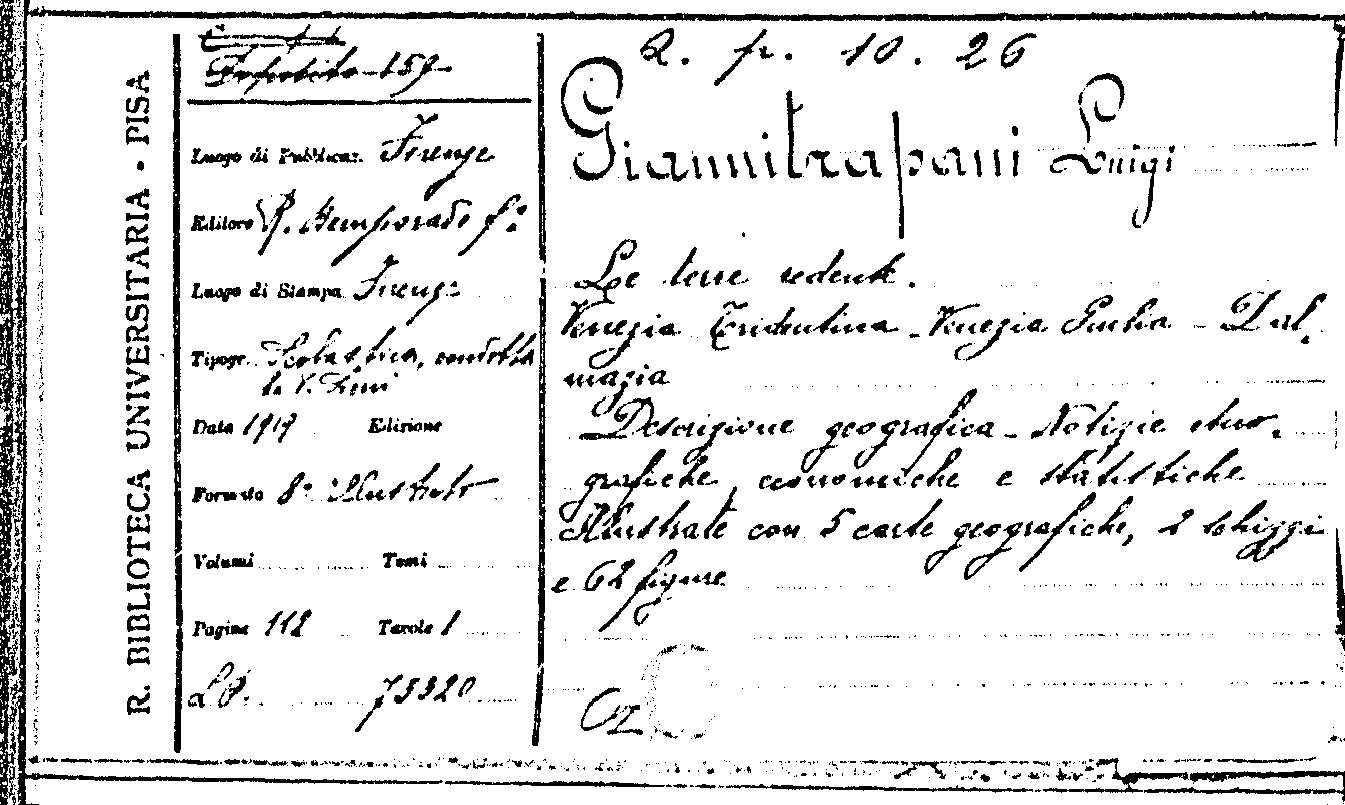 R. BIBLIOTECA UNIVERSITARIA - PISA
159
Luogo di Pubblicaz. Firenze
Editore R. Bemporad e f.°
Luogo di Stampa Firenze
Tipogr. Scolastica, condotta
da V. Sieni
Data 1919 Edizione
Formato 8° illustrato
Volumi Tomi
Pagine 112 Tavole 1
73320
2. p. 10. 26
Giannitrapani Luigi
Le terre redente.
Venezia Tridentina - Venezia Giulia - Dal
mazia
Descrizione geografica - Notizie etno-
grafiche, economiche e statistiche
Illustrate con 5 carte geografiche, 2 schizzi
e 62 figure